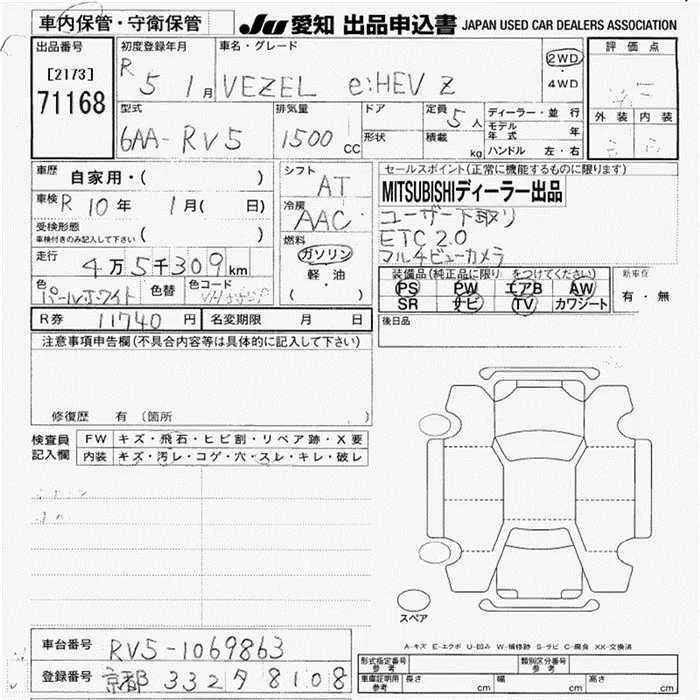 車内保管・守衛保管
JU 愛知 出品申込書 JAPAN USED CAR DEALERS ASSOCIATION
出品番号
[2173]
71168
初度登録年月
R 5 1月
車名・グレード
VEZEL e:HEV Z
2WD
・
4WD
評価点
外装 内装
型式
6AA-RV5
排気量
1500 CC
ドア
形状
定員 5人
積載 kg
ディーラー・並行
モデル年式 年
ハンドル 左・右
車歴 自家用・( )
車検 R 10年 1月( 日)
受検形態
車検付きのみ記入して下さい ( )
走行 4万5千309km
色 パールホワイト 色替 色コード
シフト
AT
冷房
AAC
燃料
ガソリン
軽油
( ・ )
セールスポイント(正常に機能するものに限ります)
MITSUBISHIディーラー出品
ユーザー下取り
ETC2.0
マルチビューカメラ
装備品(純正品に限り をつけてください)
PS PW エアB AW
SR ナビ TV カワシート
新車保
有・無
R券 11740円 名変期限 月 日
後日品
注意事項申告欄(不具合内容等は具体的に記入して下さい)
修復歴 有 (箇所
検査員
記入欄
FW キズ・飛石・ヒビ割・リペア跡・X要
内装 キズ・汚レ・コゲ・穴・スレ・キレ・破レ
スペア
A-キズ E-エクボ U-凹み W-補修跡 S-サビ C-腐食 XX-交換済
車台番号 RV5-1069863
登録番号 京都 332 ヲ 8108
型式指定番号
参考
類別区分番号
参考
車庫証明用
参考
長さ cm 幅 cm 高さ cm